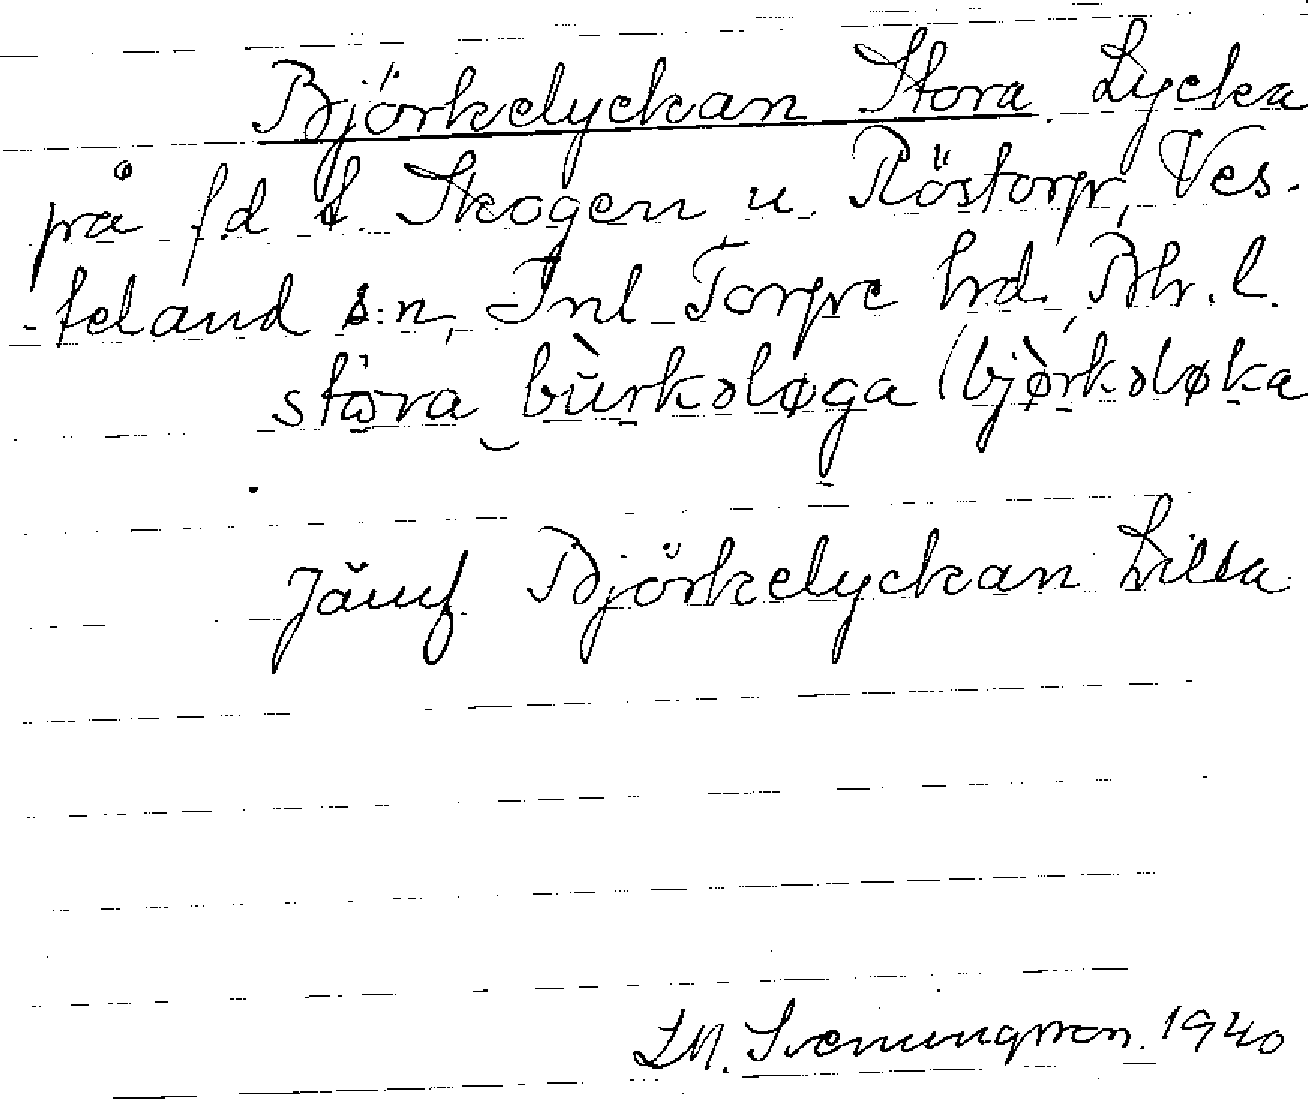 Björkelyckan Stora. Lycka
på f.d. t. Skogen u. Röstorp, Ves-
teland s:n, Inl. Torpe hrd, Bhr. l.
stora bùrkəløga (bjòrkəløka
Jämf. Björkelyckan Lilla
1940